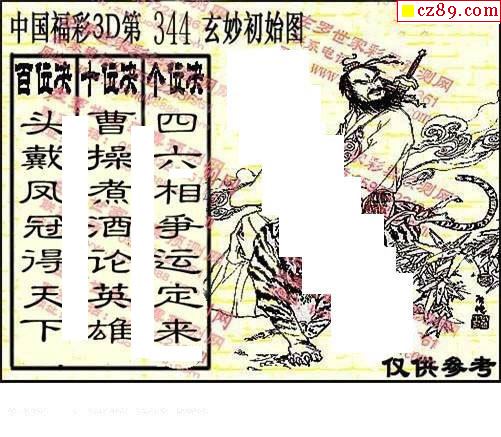 cz89.com
中国福彩3D第 344 玄妙初始图
百位决 十位决 个位决
头戴凤冠得天下
曹操煮酒论英雄
四六相争运定来
仅供参考